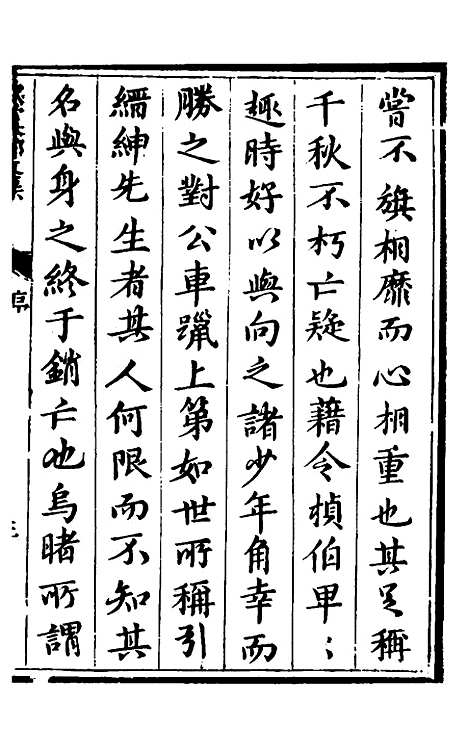 嘗不旗相靡而心相重也其足稱
千秋不朽亡疑也藉令楨伯卑〻
趣時好以與向之諸少年角幸而
勝之對公車躐上第如世所稱引
縉紳先生者其人何限而不知其
名與身之終于銷亡也烏睹所謂
序